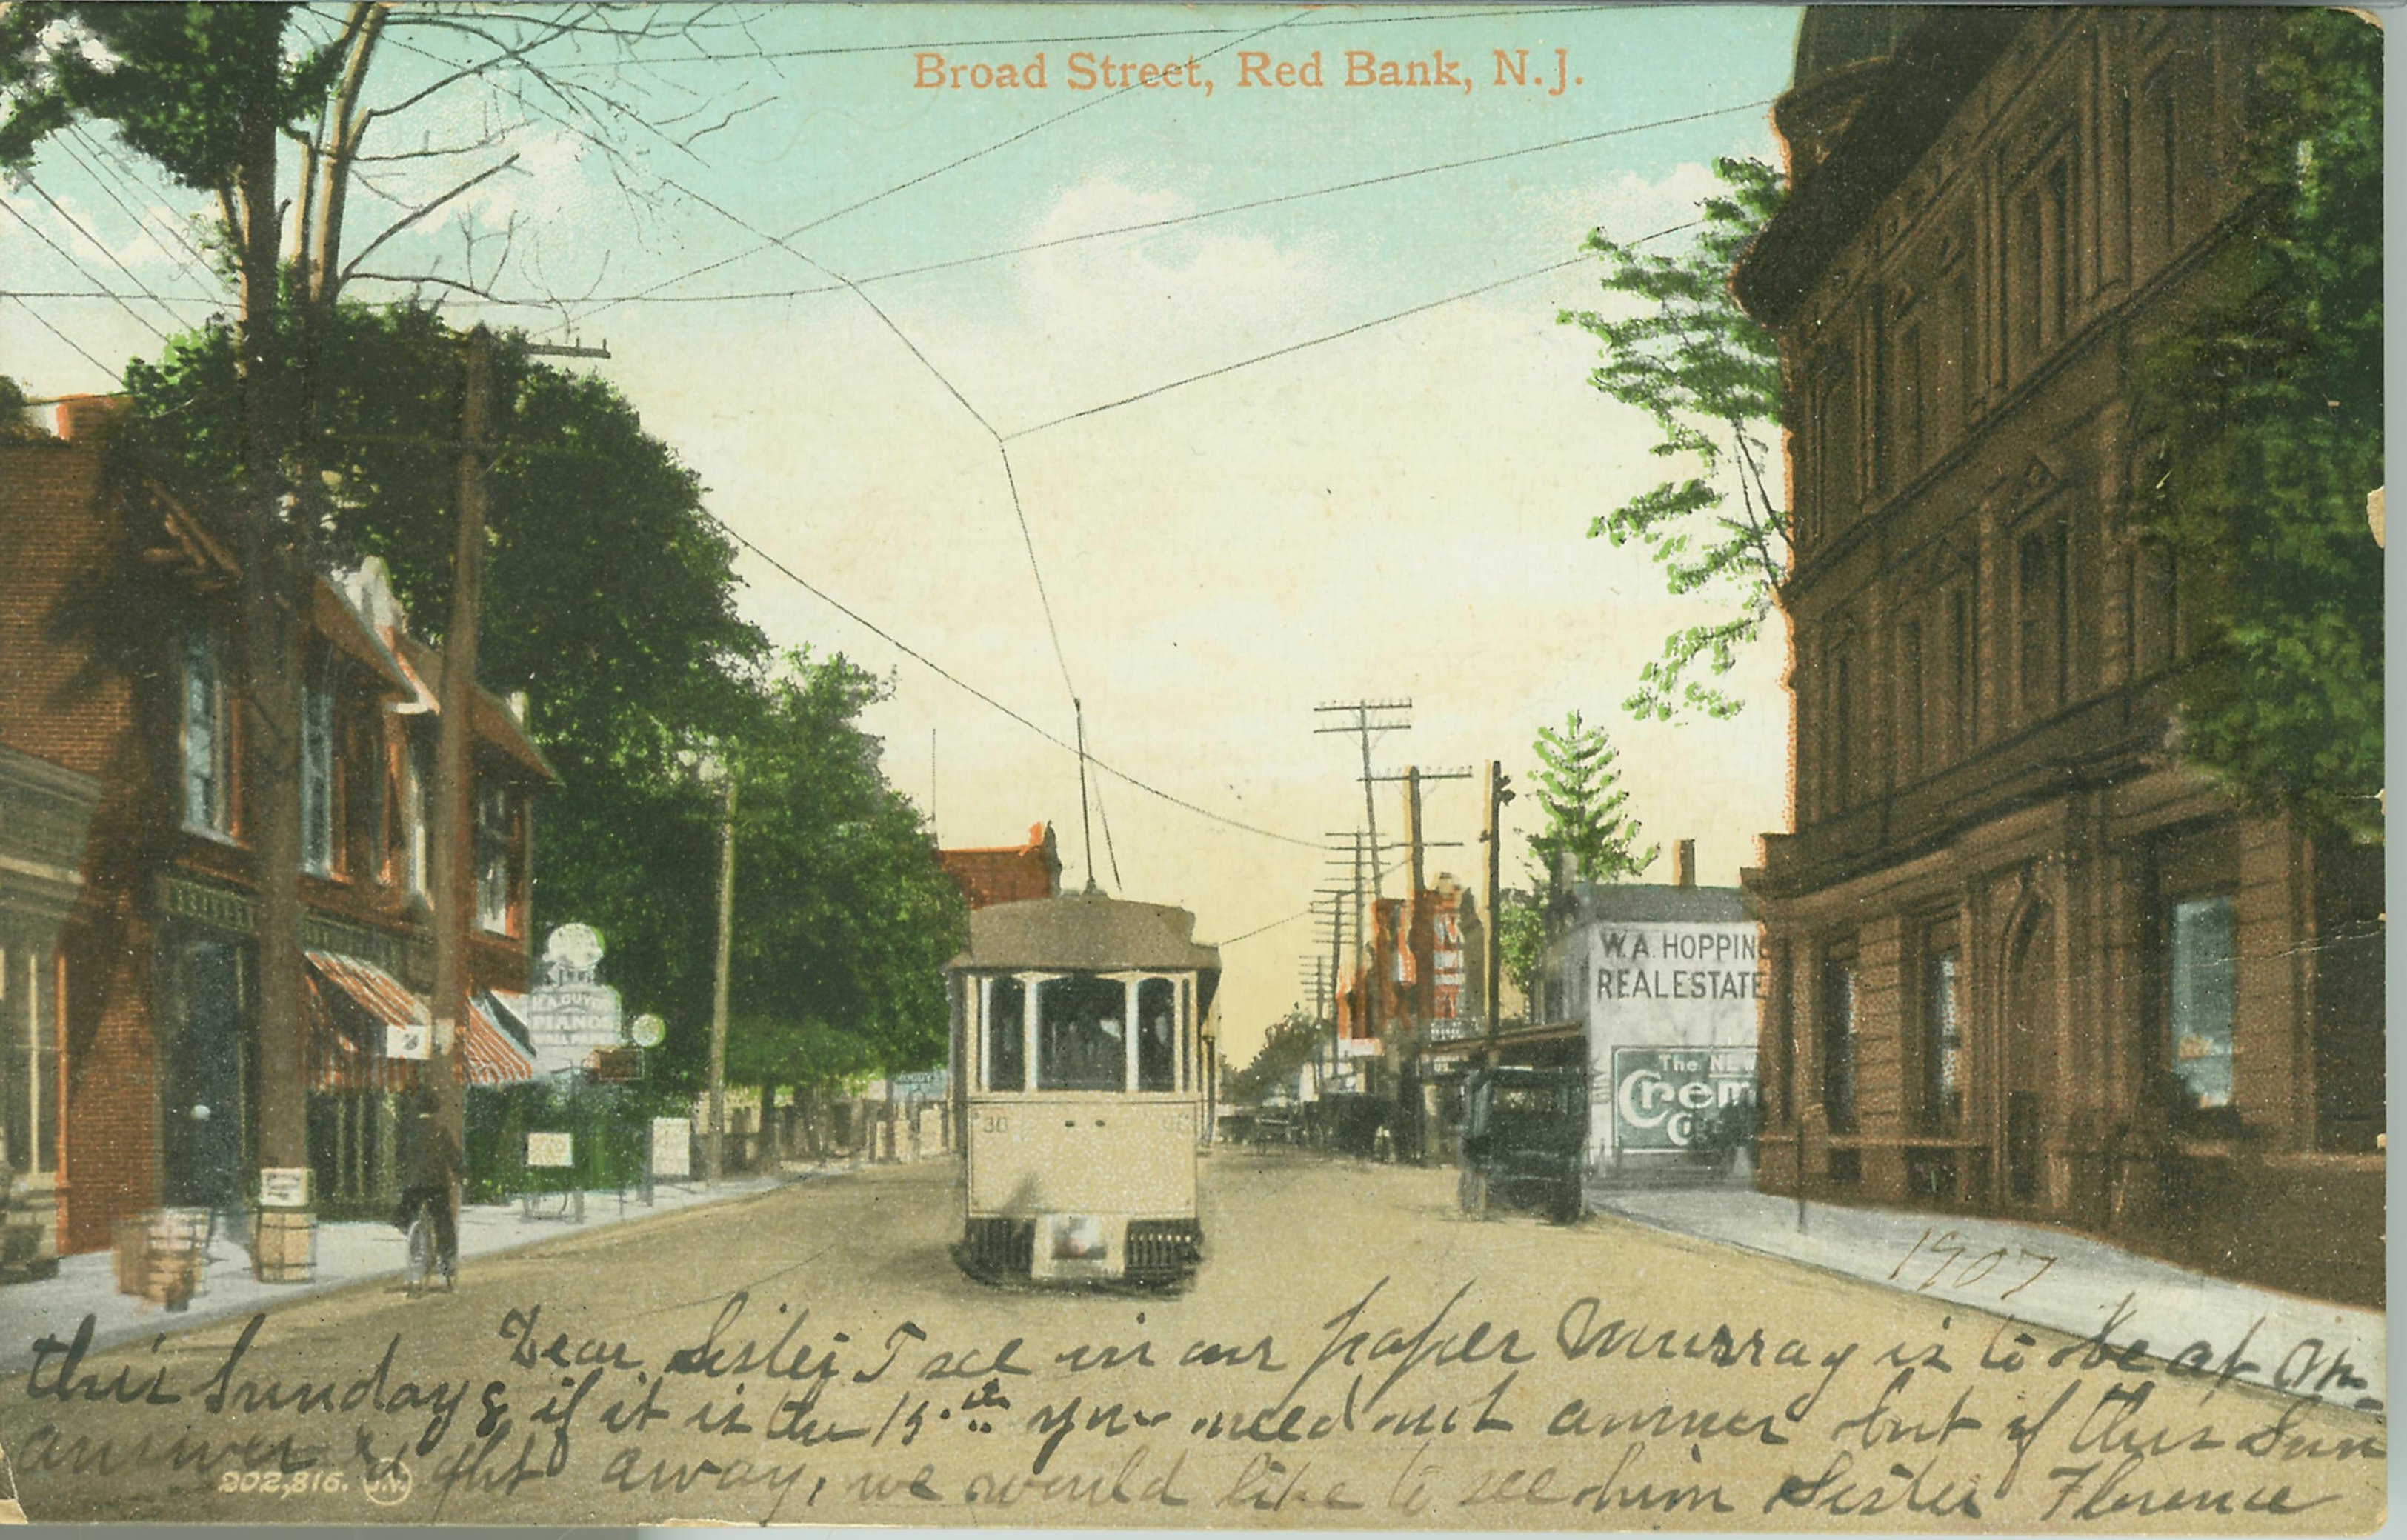 Broad Street, Red Bank, N.J.
W. A. HOPPING
REAL ESTATE
The NEW
Crem
PIANOS
30
1907
Dear Sister I see in our paper Murray is to be at
this Sunday & if it is the 15.th you need not answer but if this Sun
answer right away, we would like to see him Sister Florence
202,816. J.V.